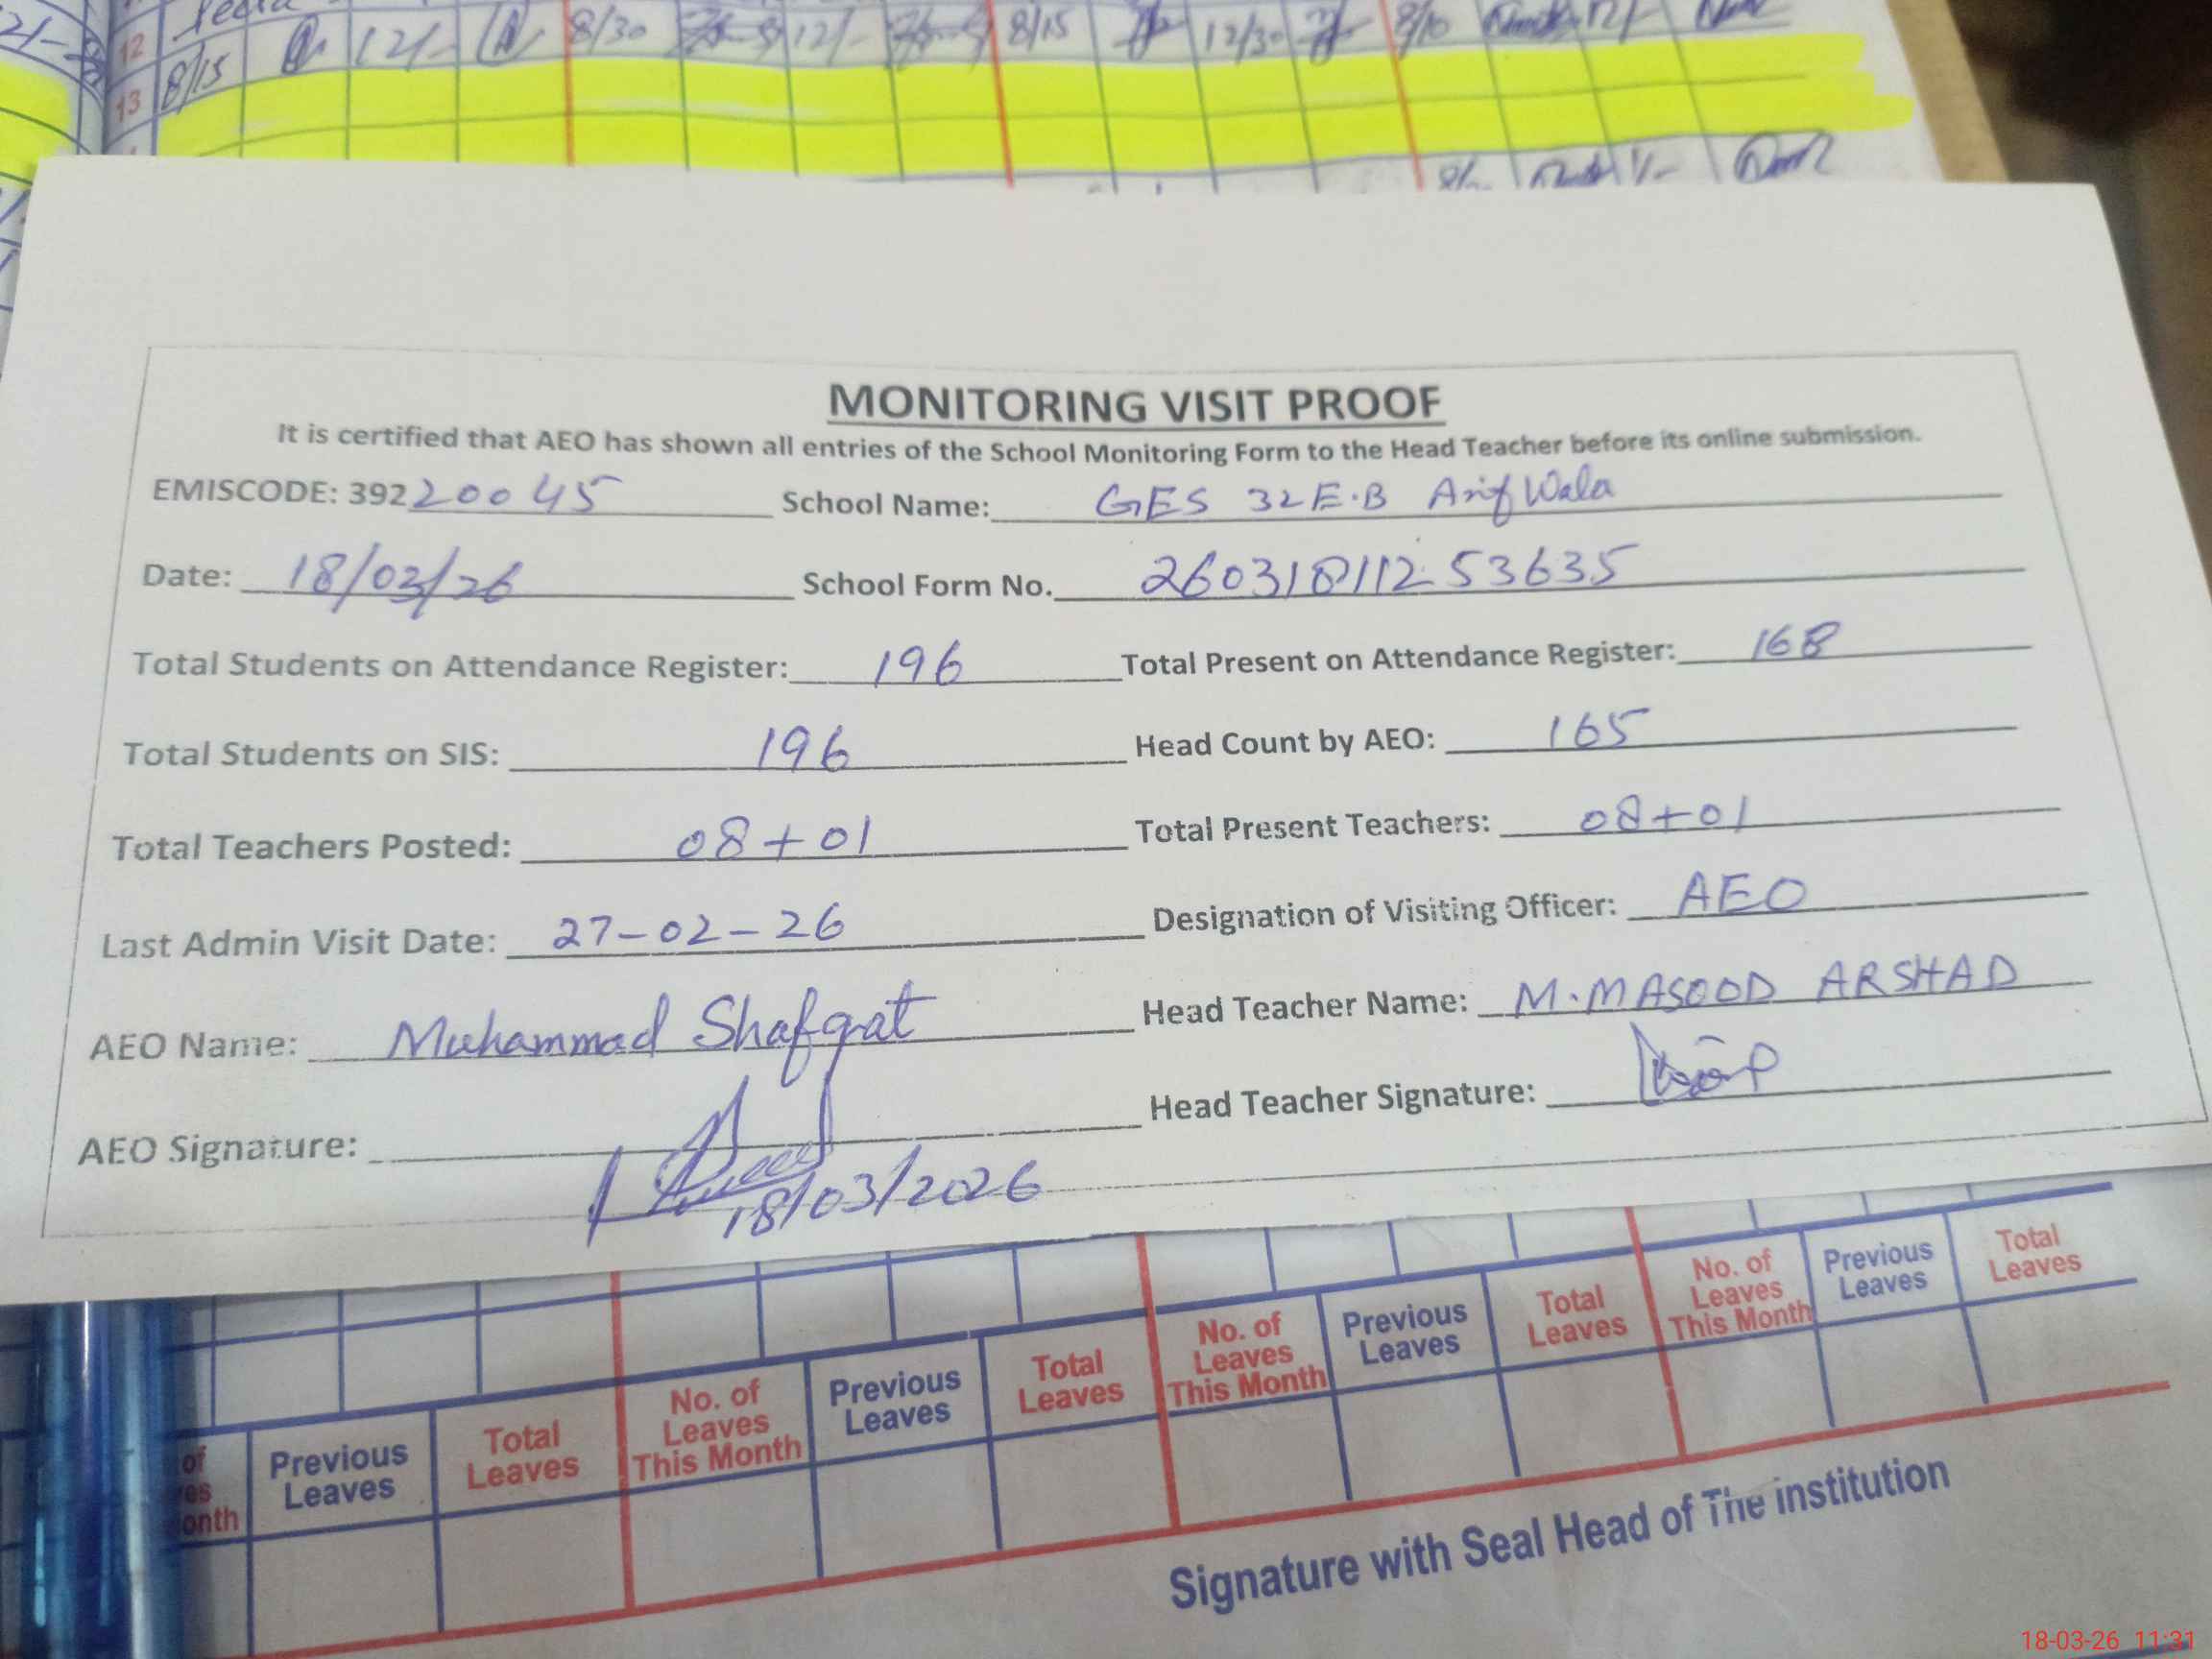 12
8/15 12/- 8/30 12/- 8/15 12/30 8/10 12/-
13
8/- 1/-
MONITORING VISIT PROOF
It is certified that AEO has shown all entries of the School Monitoring Form to the Head Teacher before its online submission.
EMISCODE: 39220045 School Name: GES 32E.B Arif Wala
Date: 18/03/26 School Form No. 26031811253635
Total Students on Attendance Register: 196 Total Present on Attendance Register: 168
Total Students on SIS: 196 Head Count by AEO: 165
Total Teachers Posted: 08+01 Total Present Teachers: 08+01
Last Admin Visit Date: 27-02-26 Designation of Visiting Officer: AEO
AEO Name: Muhammad Shafqat Head Teacher Name: M.MASOOD ARSHAD
AEO Signature: Head Teacher Signature:
18/03/2026
Previous Leaves Total Leaves No. of Leaves This Month Previous Leaves Total Leaves No. of Leaves This Month Previous Leaves Total Leaves No. of Leaves This Month Previous Leaves Total Leaves
Signature with Seal Head of The institution
18-03-26 11:31